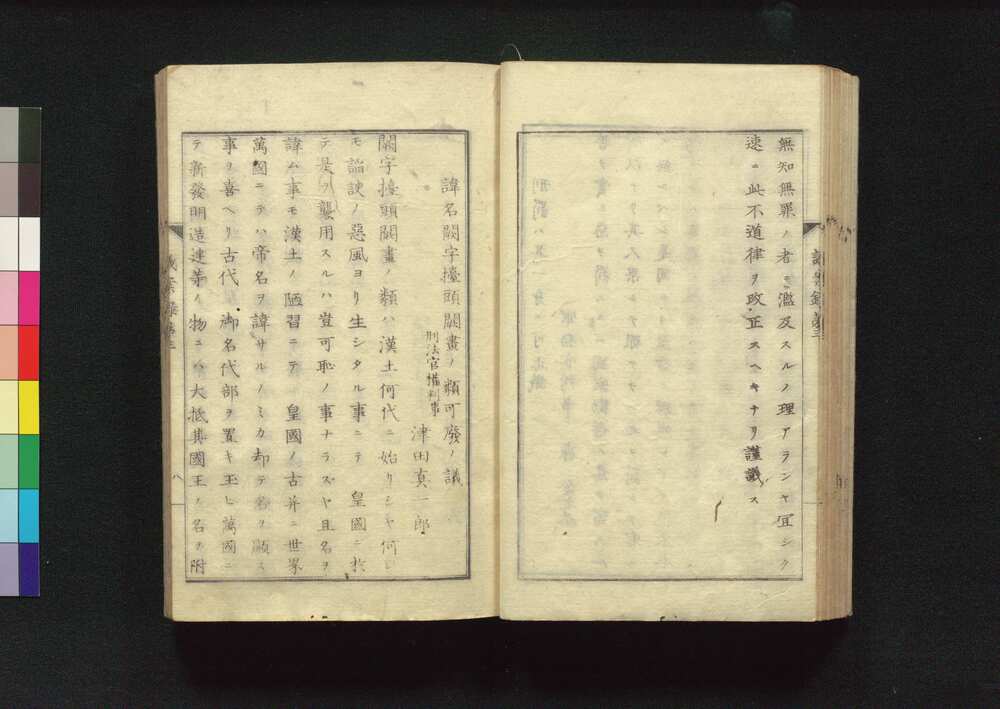 無知無罪ノ者ニ濫及スルノ理アランヤ冝シク
速ニ此不道律ヲ改正スヘキナリ謹議ス
議案録第三
諱名闕字擡頭闕畫ノ類可廢ノ議
刑法官權判事
津田真一郎
闕字擡頭闕畫ノ類ハ漢土何代ニ始リシヤ何レ
モ諂諛ノ惡風ヨリ生シタル事ニテ 皇國ニ於
テ是ヲ襲用スルハ豈可恥ノ事ナラスヤ且名ヲ
諱ム事モ漢土ノ陋習ニテ 皇國ノ古并ニ世界
萬國ニテハ帝名ヲ諱サルノミカ却テ名ヲ顯ス
事ヲ喜ヘリ古代 御名代部ヲ置キ玉ヒ萬國ニ
テ新發明造達等ノ物ニハ大抵其國王ノ名ヲ附
議案録第三
八